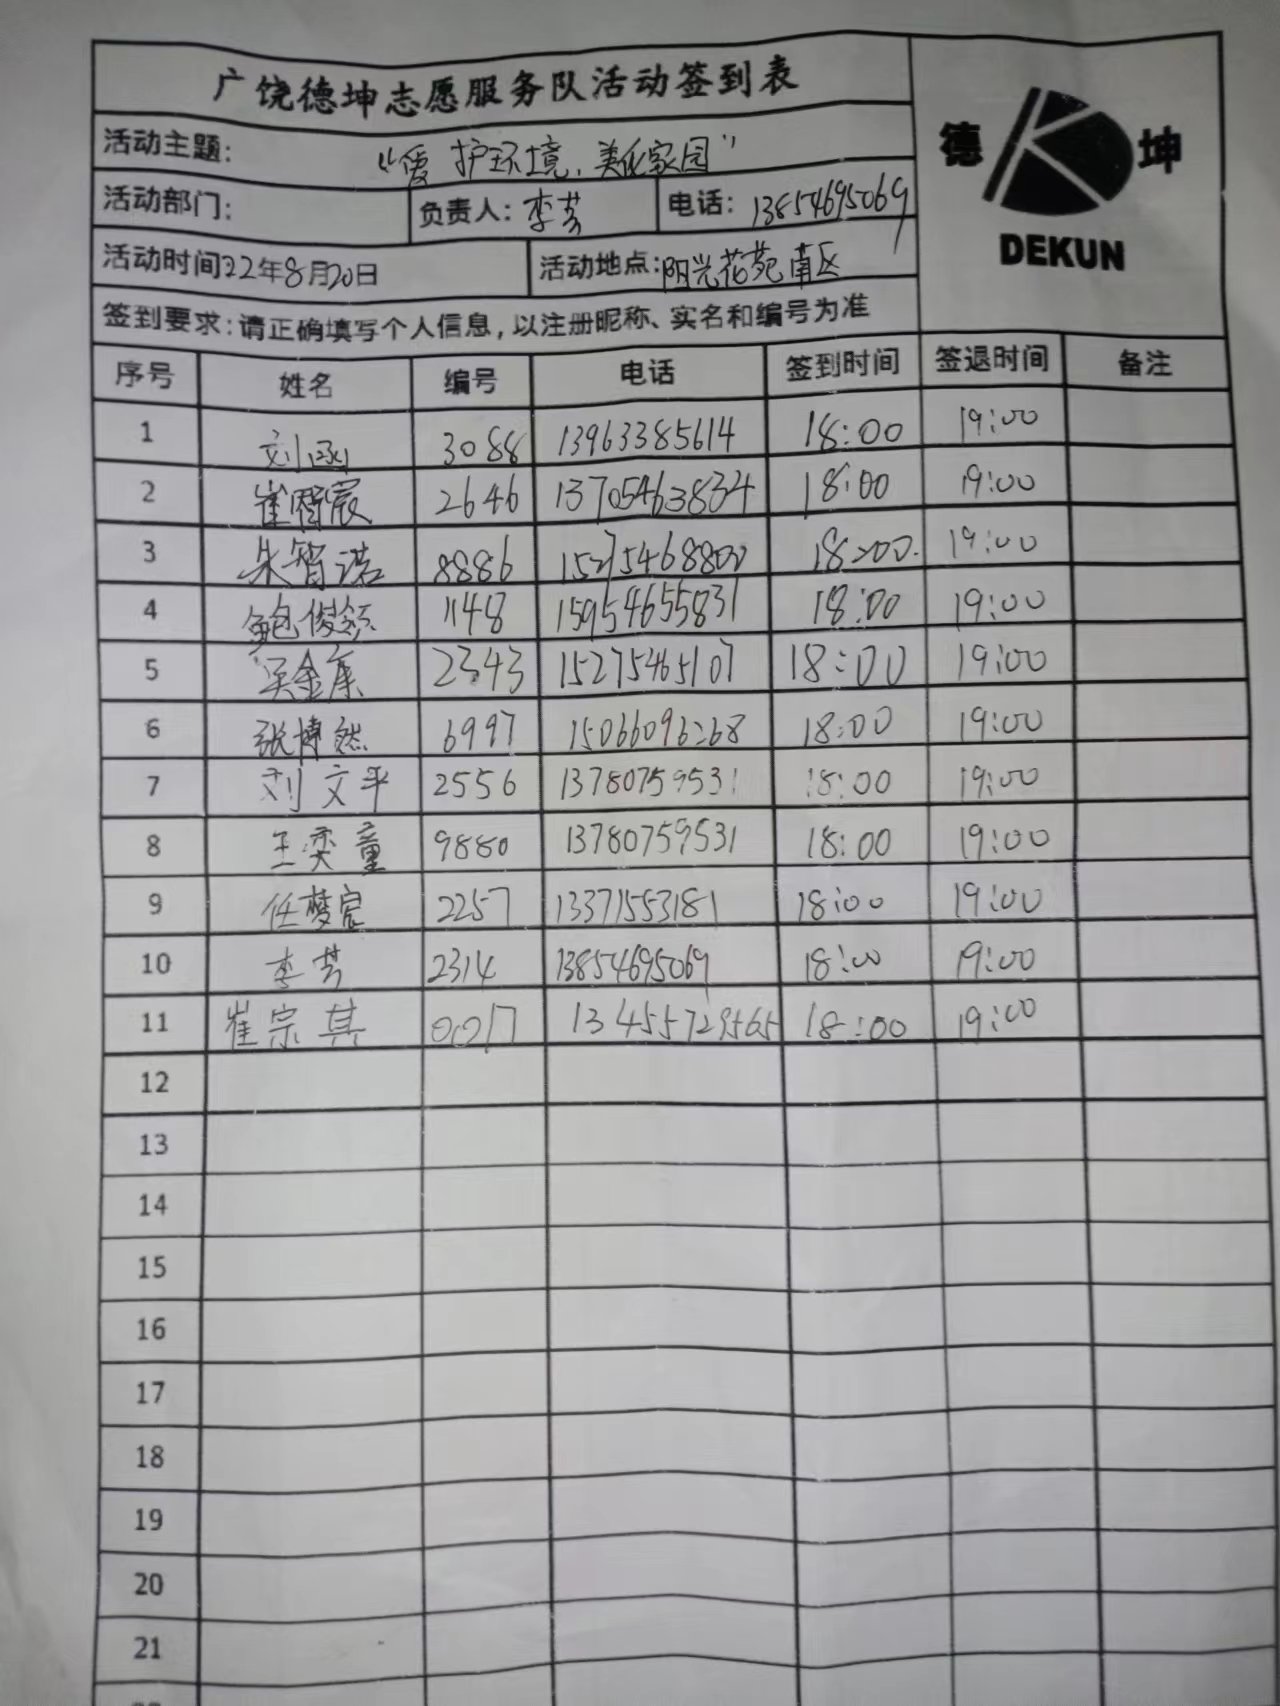 广饶德坤志愿服务队活动签到表
德 坤
DEKUN
活动主题: “爱护环境,美化家园”
活动部门: 负责人: 李芳 电话: 13854695069
活动时间22年8月20日 活动地点:阳光花苑南区
签到要求:请正确填写个人信息,以注册昵称、实名和编号为准
序号 姓名 编号 电话 签到时间 签退时间 备注
1 刘涵 3088 13963385614 18:00 19:00
2 崔 宸 2646 13705463834 18:00 19:00
3 朱智诺 8886 18:00 19:00
4 鲍俊颔 1148 15954655831 18:00 19:00
5 吴金库 2343 15275465107 18:00 19:00
6 张博然 6997 15066096268 18:00 19:00
7 刘文平 2556 13780759531 18:00 19:00
8 王奕童 9880 13780759531 18:00 19:00
9 任梦宸 2257 13371553181 18:00 19:00
10 李芳 2314 13854695069 18:00 19:00
11 崔宗其 0017 18:00 19:00
12
13
14
15
16
17
18
19
20
21